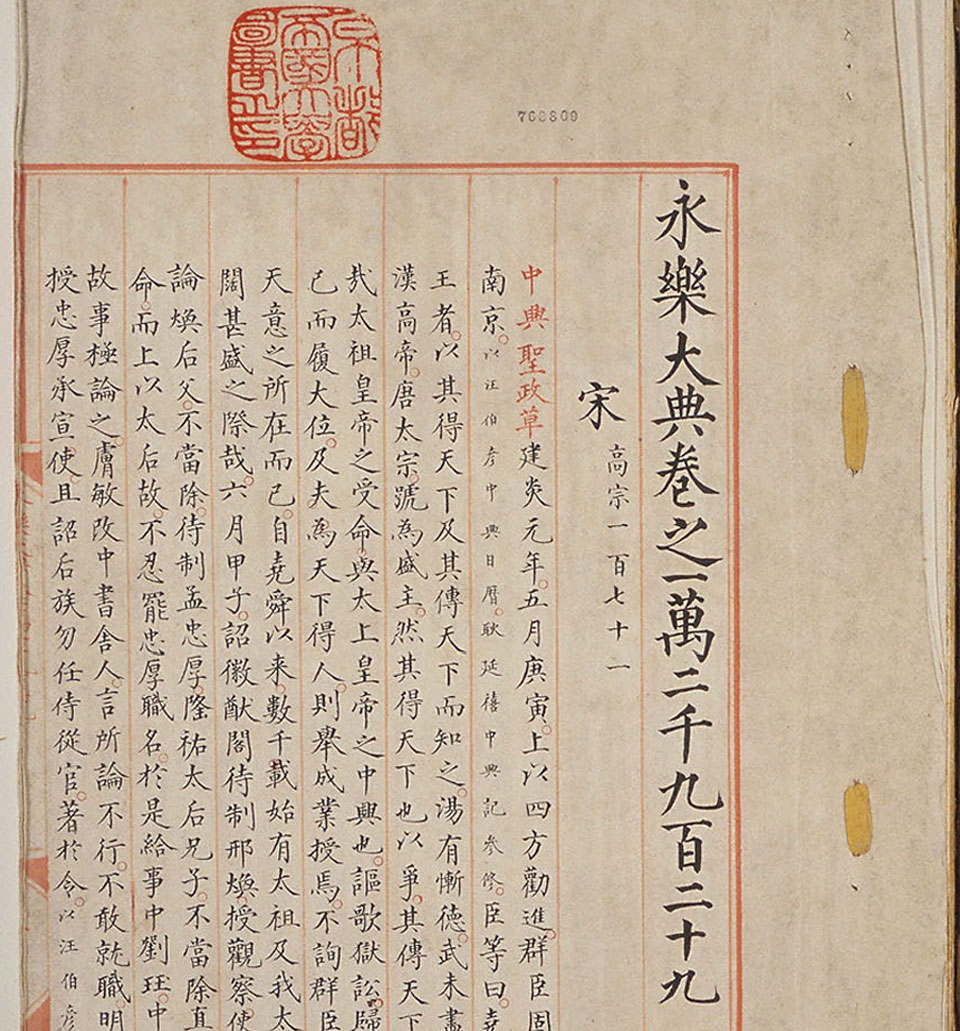 京都
帝國大學
圖書之印
永樂大典卷之一萬二千九百二十九
宋 高宗一百七十一
中興聖政草建炎元年。五月庚寅。上以四方勸進。群臣固
南京。以汪伯彥中興日曆。耿延禧中興記參修。臣等曰。堯
王者。以其得天下及其傳天下而知之。湯有慚德。武未盡
漢高帝。唐太宗。號為盛主。然其得天下也以爭。其傳天下
哉太祖皇帝之受命。與太上皇帝之中興也。謳歌獄訟。歸
已而履大位。及夫為天下得人。則舉成業授焉。不詢群臣
天意之所在而已。自堯舜以来。數千載始有太祖及我太
闊甚盛之際哉。六月甲子。詔徽猷閣待制邢煥。授觀察使
論煥后父。不當除。待制孟忠厚。隆祐太后兄子。不當除直
命。而上以太后故。不忍罷忠厚職名。於是給事中劉珏。中
故事極論之。膚敏改中書舍人。言所論不行。不敢就職。明
授忠厚承宣使。且詔后族勿任侍從官。著於令。以汪伯彥